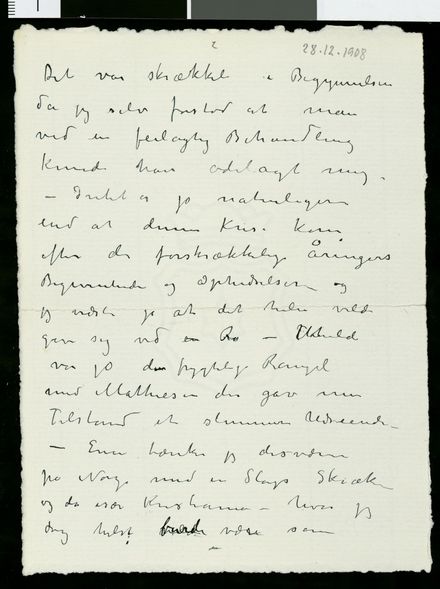 2
28.12.1908
Det var skrækkel i Begynnelsen
da jeg selv forstod at man
ved en feilagtig Behandling
kunde have ødelagt mig.
– Intet er jo naturligere
end at denne Kris. kom
efter de forskrækkelige Åringers
og Ophidselser og
jeg vidste jo at det hele vilde
give sig ved en Ro – Uheld
var jo den frygtelige Rangel
med Mathiesen der gav min
Tilstand et slemmere Udseende –
– Enu tænker jeg desværre
på Norge med en Slags Skræk
og da især Kristiania – hvor jeg
dog helst burde være som